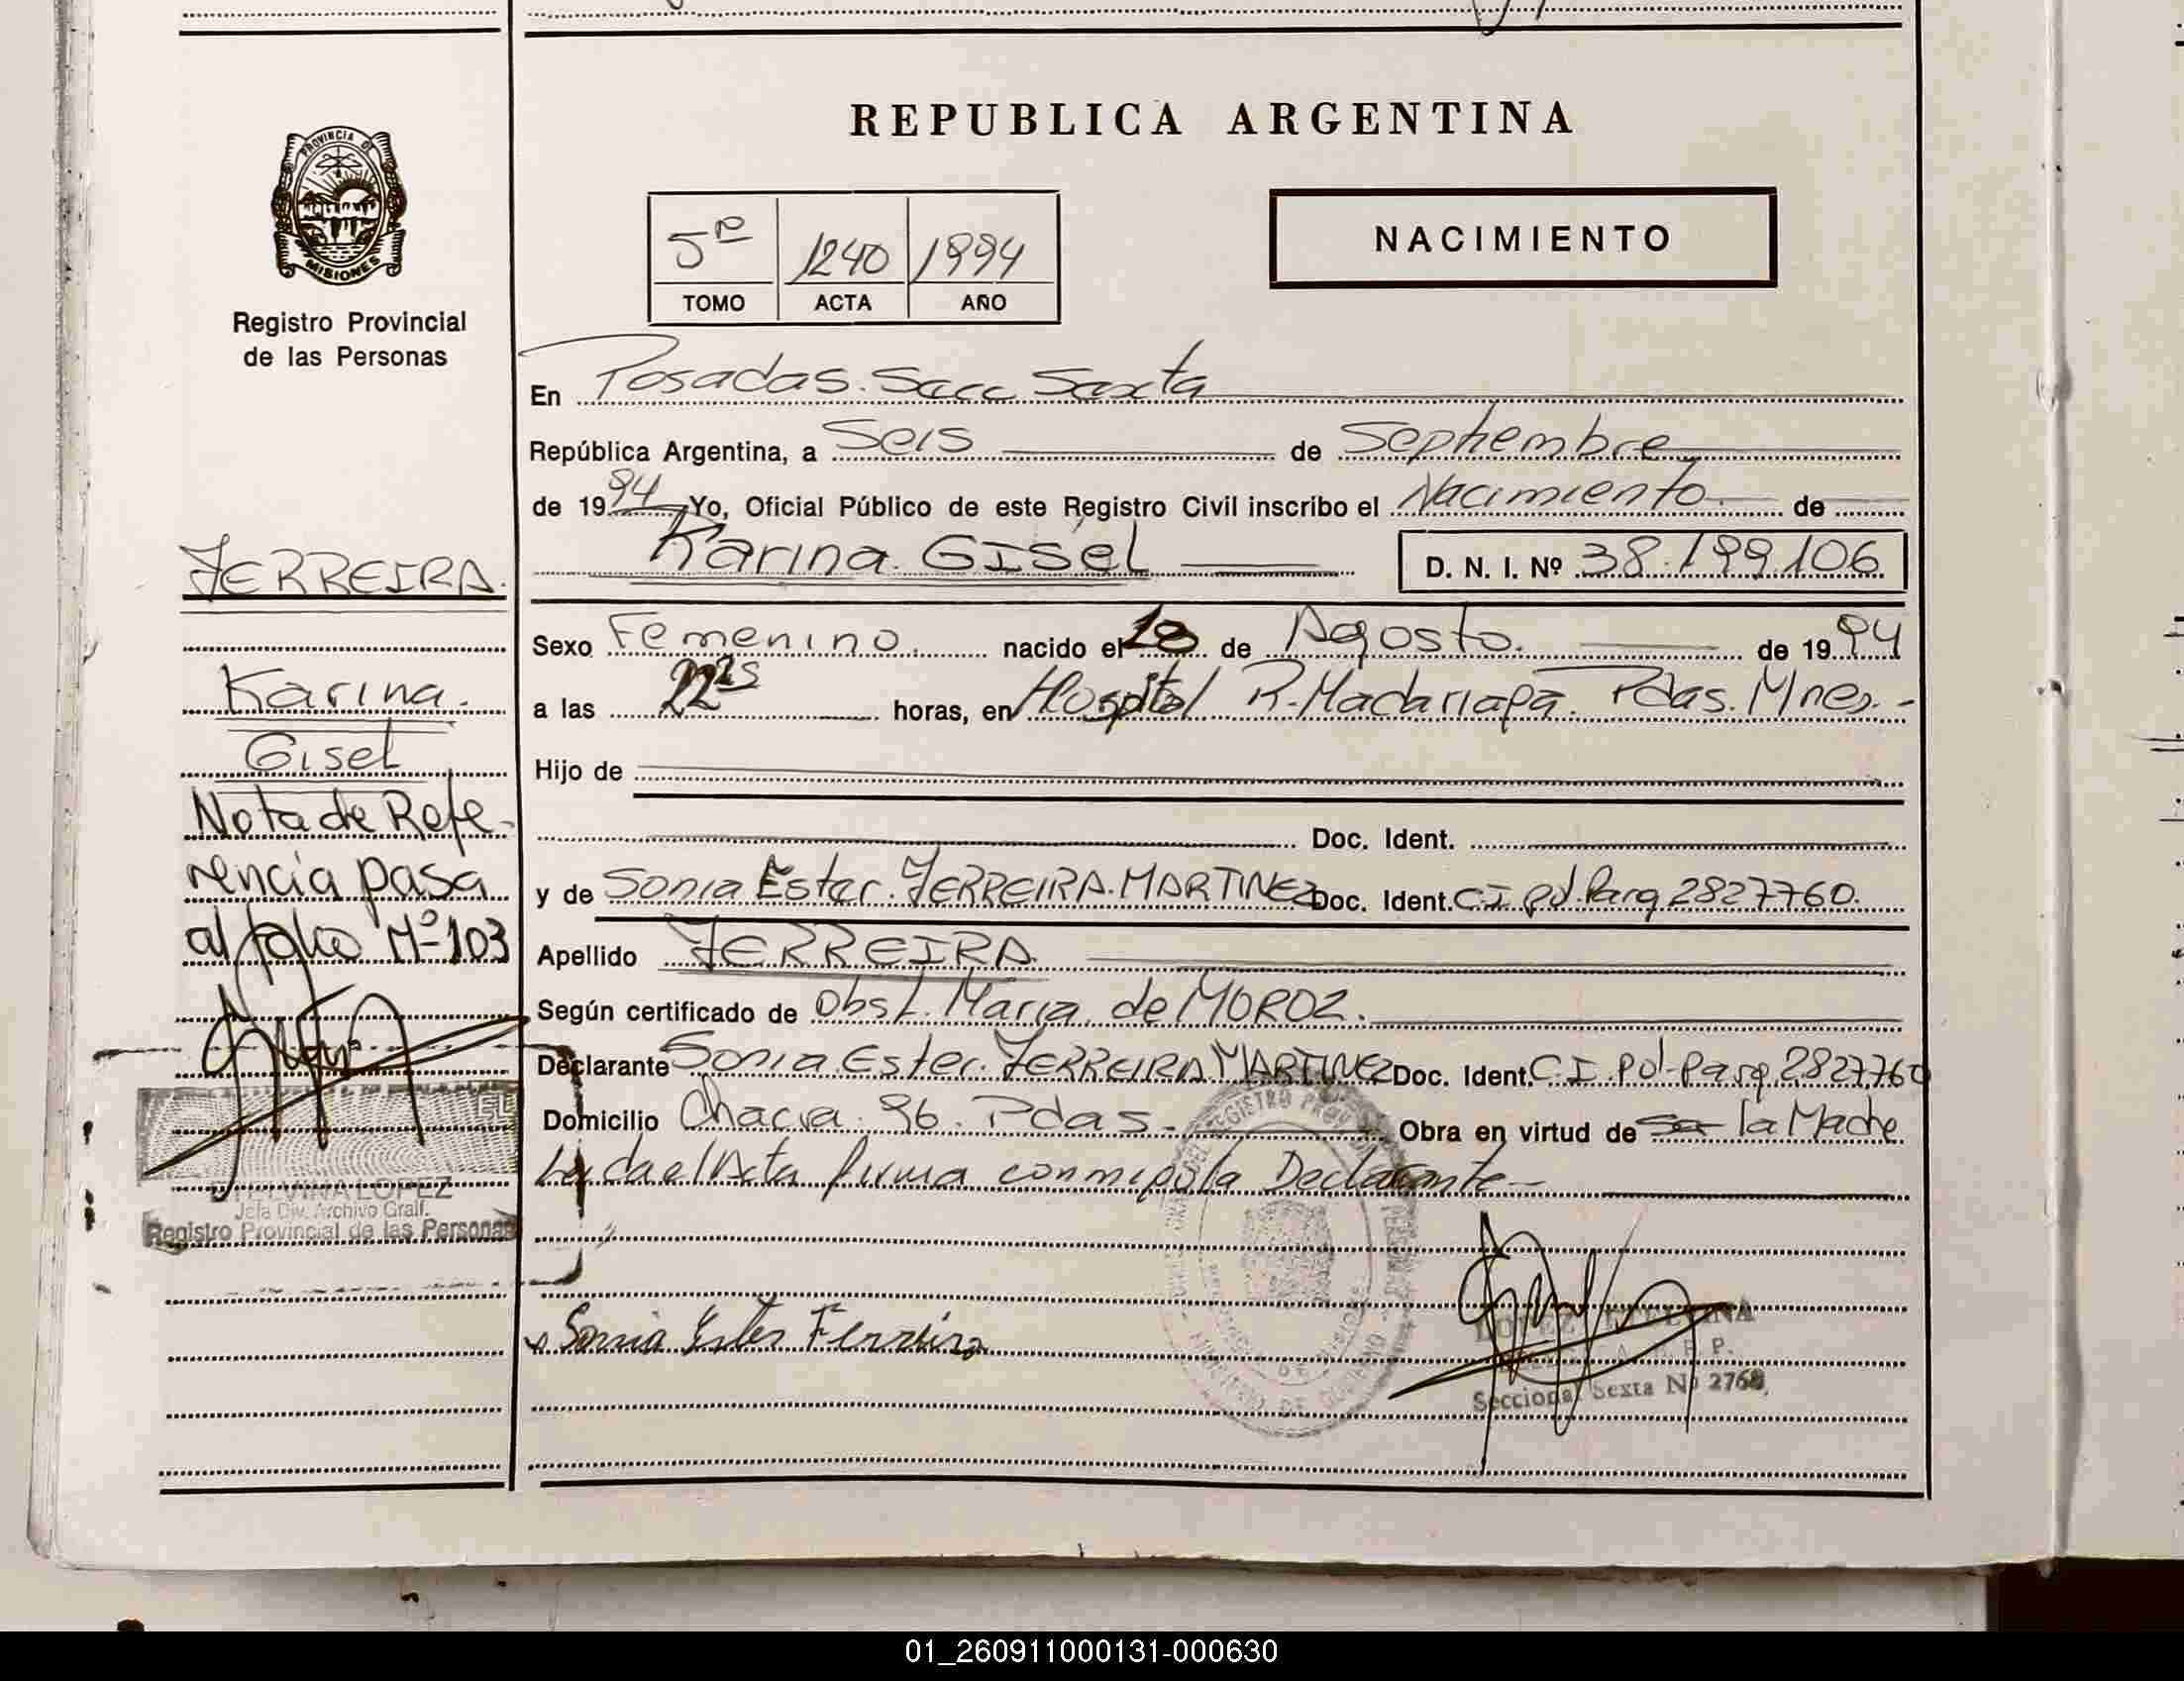 REPUBLICA ARGENTINA
PROVINCIA DE
MISIONES
Registro Provincial
de las Personas
NACIMIENTO
5º 1240 1994
TOMO ACTA AÑO
En Posadas. Secc Sexta
República Argentina, a Seis de Septiembre
de 1994 Yo, Oficial Público de este Registro Civil inscribo el Nacimiento. de
Karina GISEL D. N. I. Nº 38.199.106
Sexo Femenino. nacido el de Agosto. de 1994
a las horas, en Hospital R. Madariaga. Pdas. Mnes.-
Hijo de
Doc. Ident.
y de Sonia Ester. FERREIRA. MARTINEZ Doc. Ident. C.I. pol. Parg 2827760.
Apellido FERREIRA
Según certificado de Obst. Maria de MOROZ.
Declarante Sonia Ester. FERREIRA MARTINEZ Doc. Ident. C.I. Pol-Parg. 2827760
Domicilio Chacra. 96. Pdas. Obra en virtud de Ser la Madre
Leida el Acta firma conmigo la Declarante-
Sonia Ester Ferreira
LOPEZ ETELVINA
Seccional Sexta Nº 2768
FERREIRA.
Karina.
Gisel
Nota de Refe-
rencia pasa
al folio Nº 103
ETELVINA LOPEZ
Jefa Div. Archivo Gral.
Registro Provincial de las Personas
01_260911000131-000630